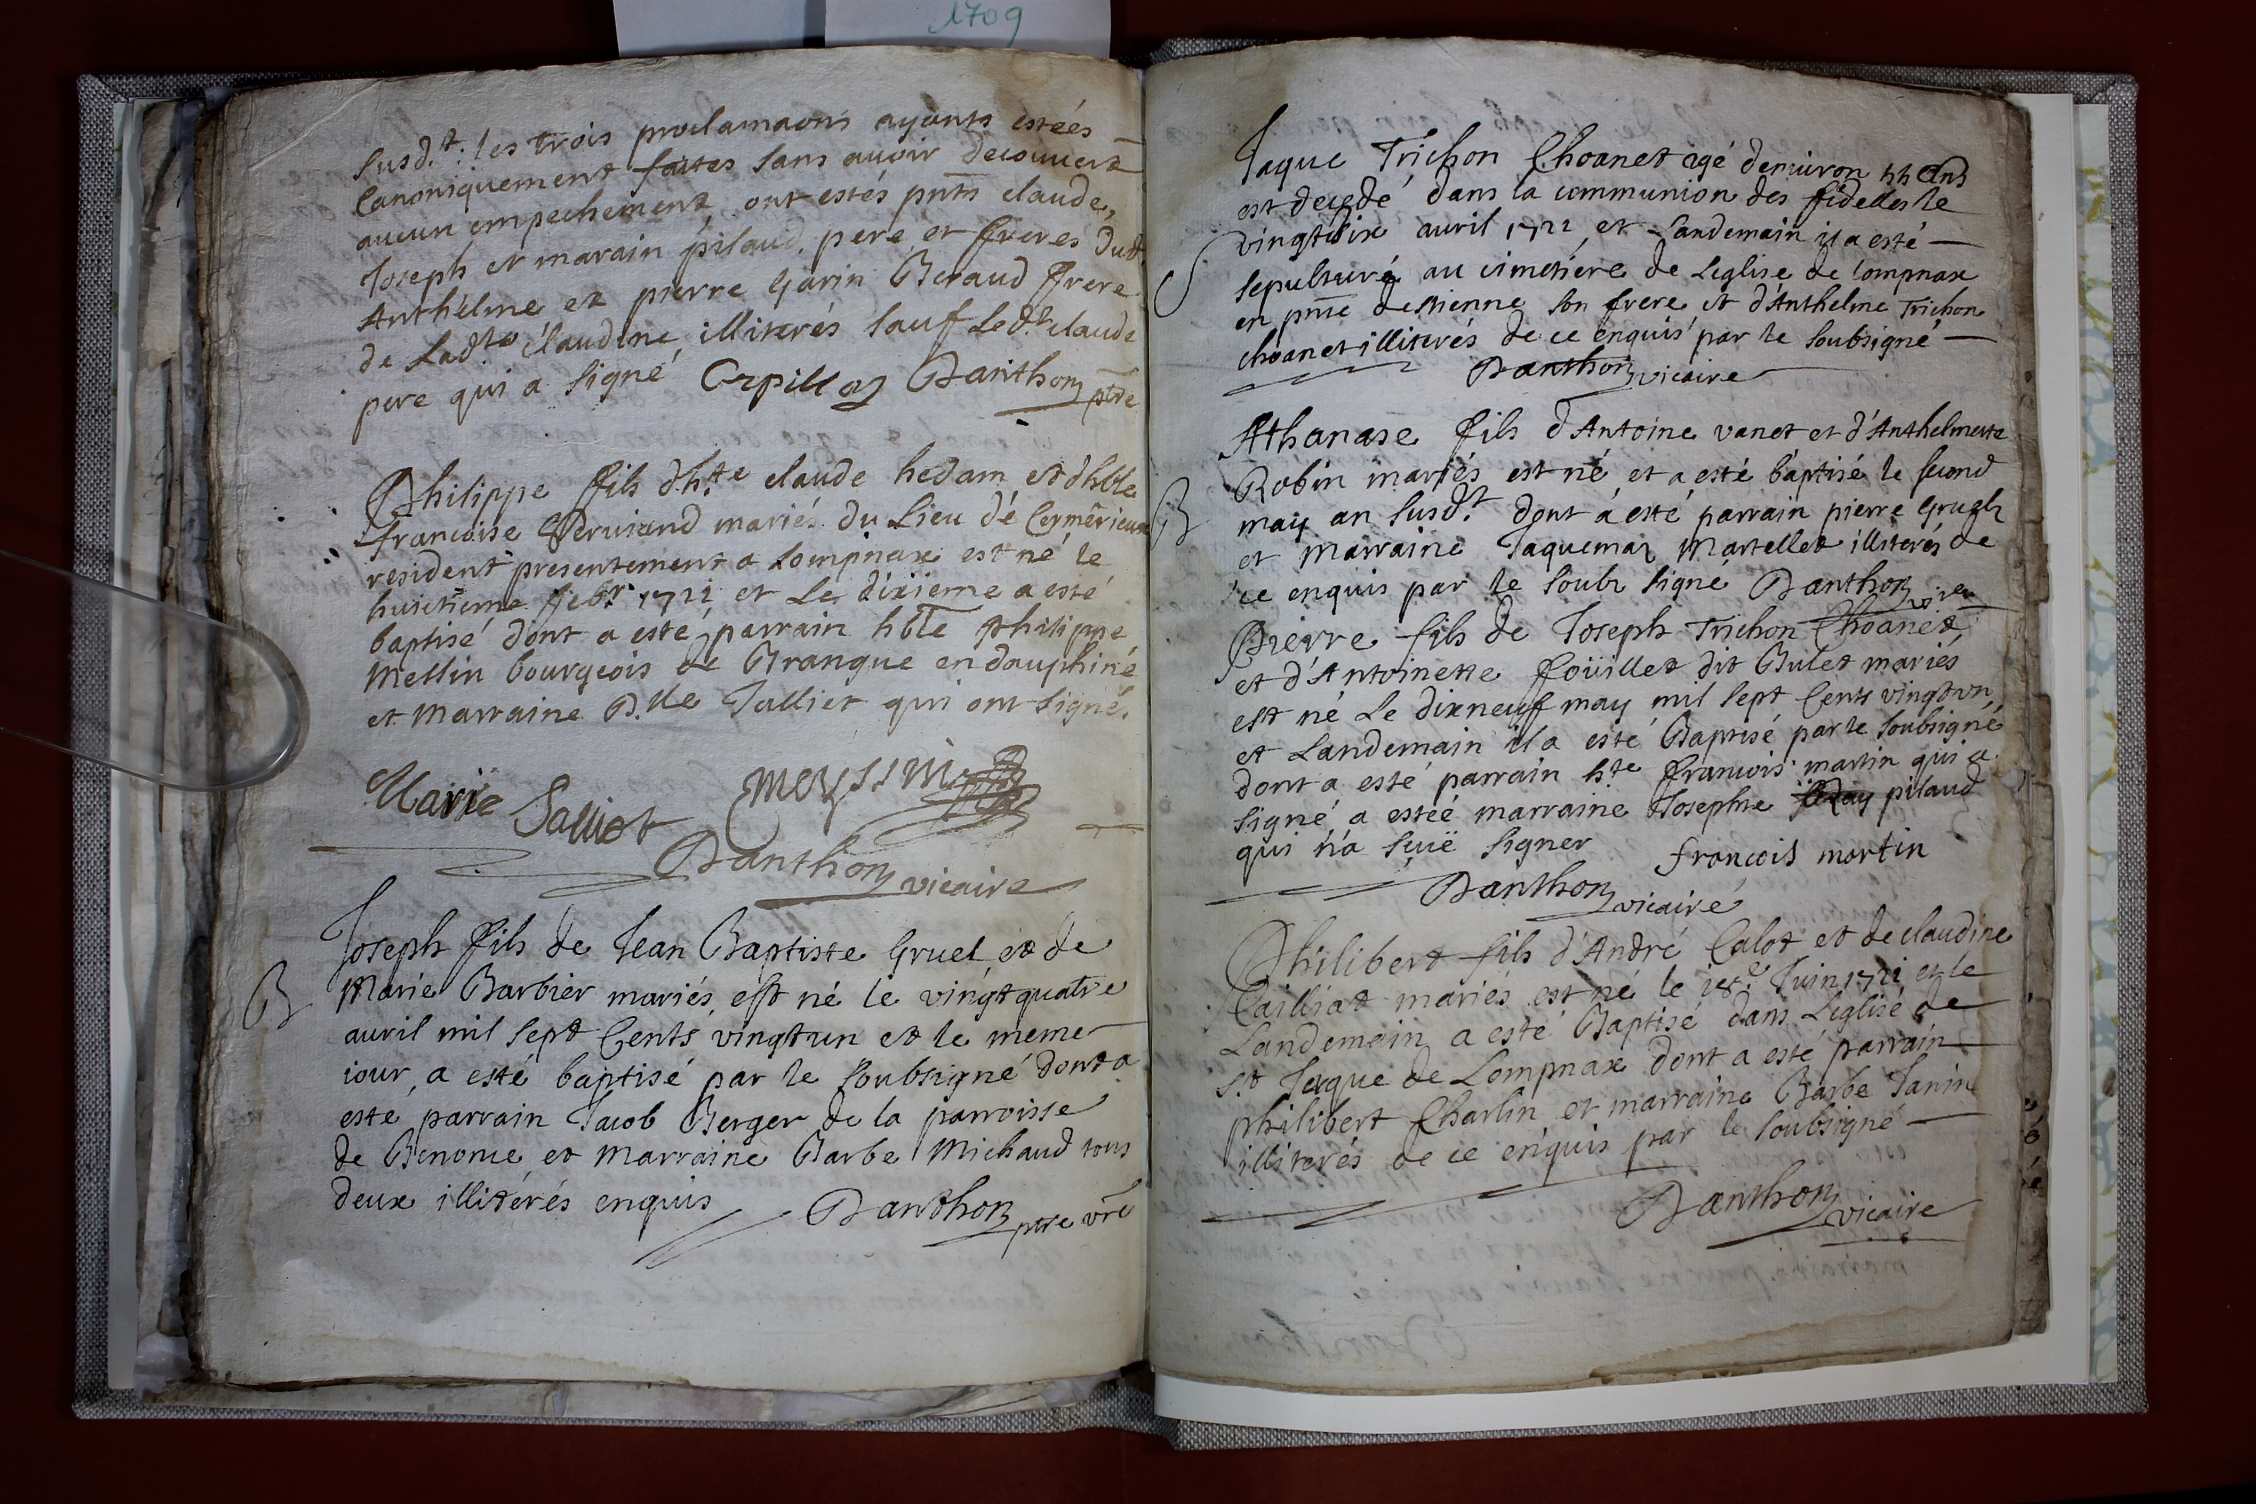 1709
susd.t les trois proclamaons ayants estées
Canoniquement faites sans avoir decouvert
aucun empechement ont estés pnts claude,
Joseph et marain pilaud pere et freres dud.t
Anthelme et pierre Garin Beraud frere
de Lad.te claudine illiterés sauf Led.t claude
pere qui a signé Cepillaz Danthon ptre
Philippe fils d'h.te claude hedam et d'hble
francoise mariés du Lieu de Cermerieum
resident presentement a Lompnax est né le
huictieme febr. 1721 et Le dixieme a esté
baptisé dont a esté parrain hble Philippe
Messin bourgeois de Brangue en dauphiné
et Marraine D.lle Jalliet qui ont signé.
Marie Jalliet
Meyssin
Danthon vicaire
Joseph fils de Jean Baptiste Gruel et de
B Marie Barbier mariés est né le vingt quatre
avril mil sept Cents vingt un et le meme
iour a esté baptisé par le soubsigné dont a
esté parrain Jacob Berger de la parroisse
de Benonce et Marraine Barbe Michaud tous
deux illitérés enquis Danthon ptre vre
Jaque Trichon Choanet agé denviron 44 ans
est decedé dans la communion des fidelles le
vingt six avril 1721 et Landemain il a esté
S sepulturé au cimetiere de Leglise de Lompnax
en pnce destienne son frere et d'Anthelme Trichon
choanet illiterés de ce enquis par le soubsigné
Danthon vicaire
Athanase fils d'Antoine vanet et d'Anthelmette
Robin mariés est né et a esté baptisé le second
B may an susd.t dont a esté parrain pierre Gruel
et Marraine Jaquemaz Martellet illiterés de
ce enquis par le soubz signé Danthon vire
Pierre fils de Joseph Trichon Choanet
et d'Antoinette foüillet dit Bulet mariés
est né Le dixneuf may mil sept Cents vingt un
et Landemain il a esté Baptisé par le soubsigné
dont a esté parrain h.te francois martin qui a
signé a estéé marraine Josephte pilaud
qui n'a sçuë signer francois martin
Danthon vicaire
Philibert fils d'André Calot et de claudine
Cailliat mariés est né le 18.e Juin 1721 et le
Landemain a esté Baptisé dans Leglise de
S.t Jaque de Lompnax dont a esté parrain
philibert Charlin et marraine Barbe Janin
illiterés de ce enquis par le soubsigné
Danthon vicaire